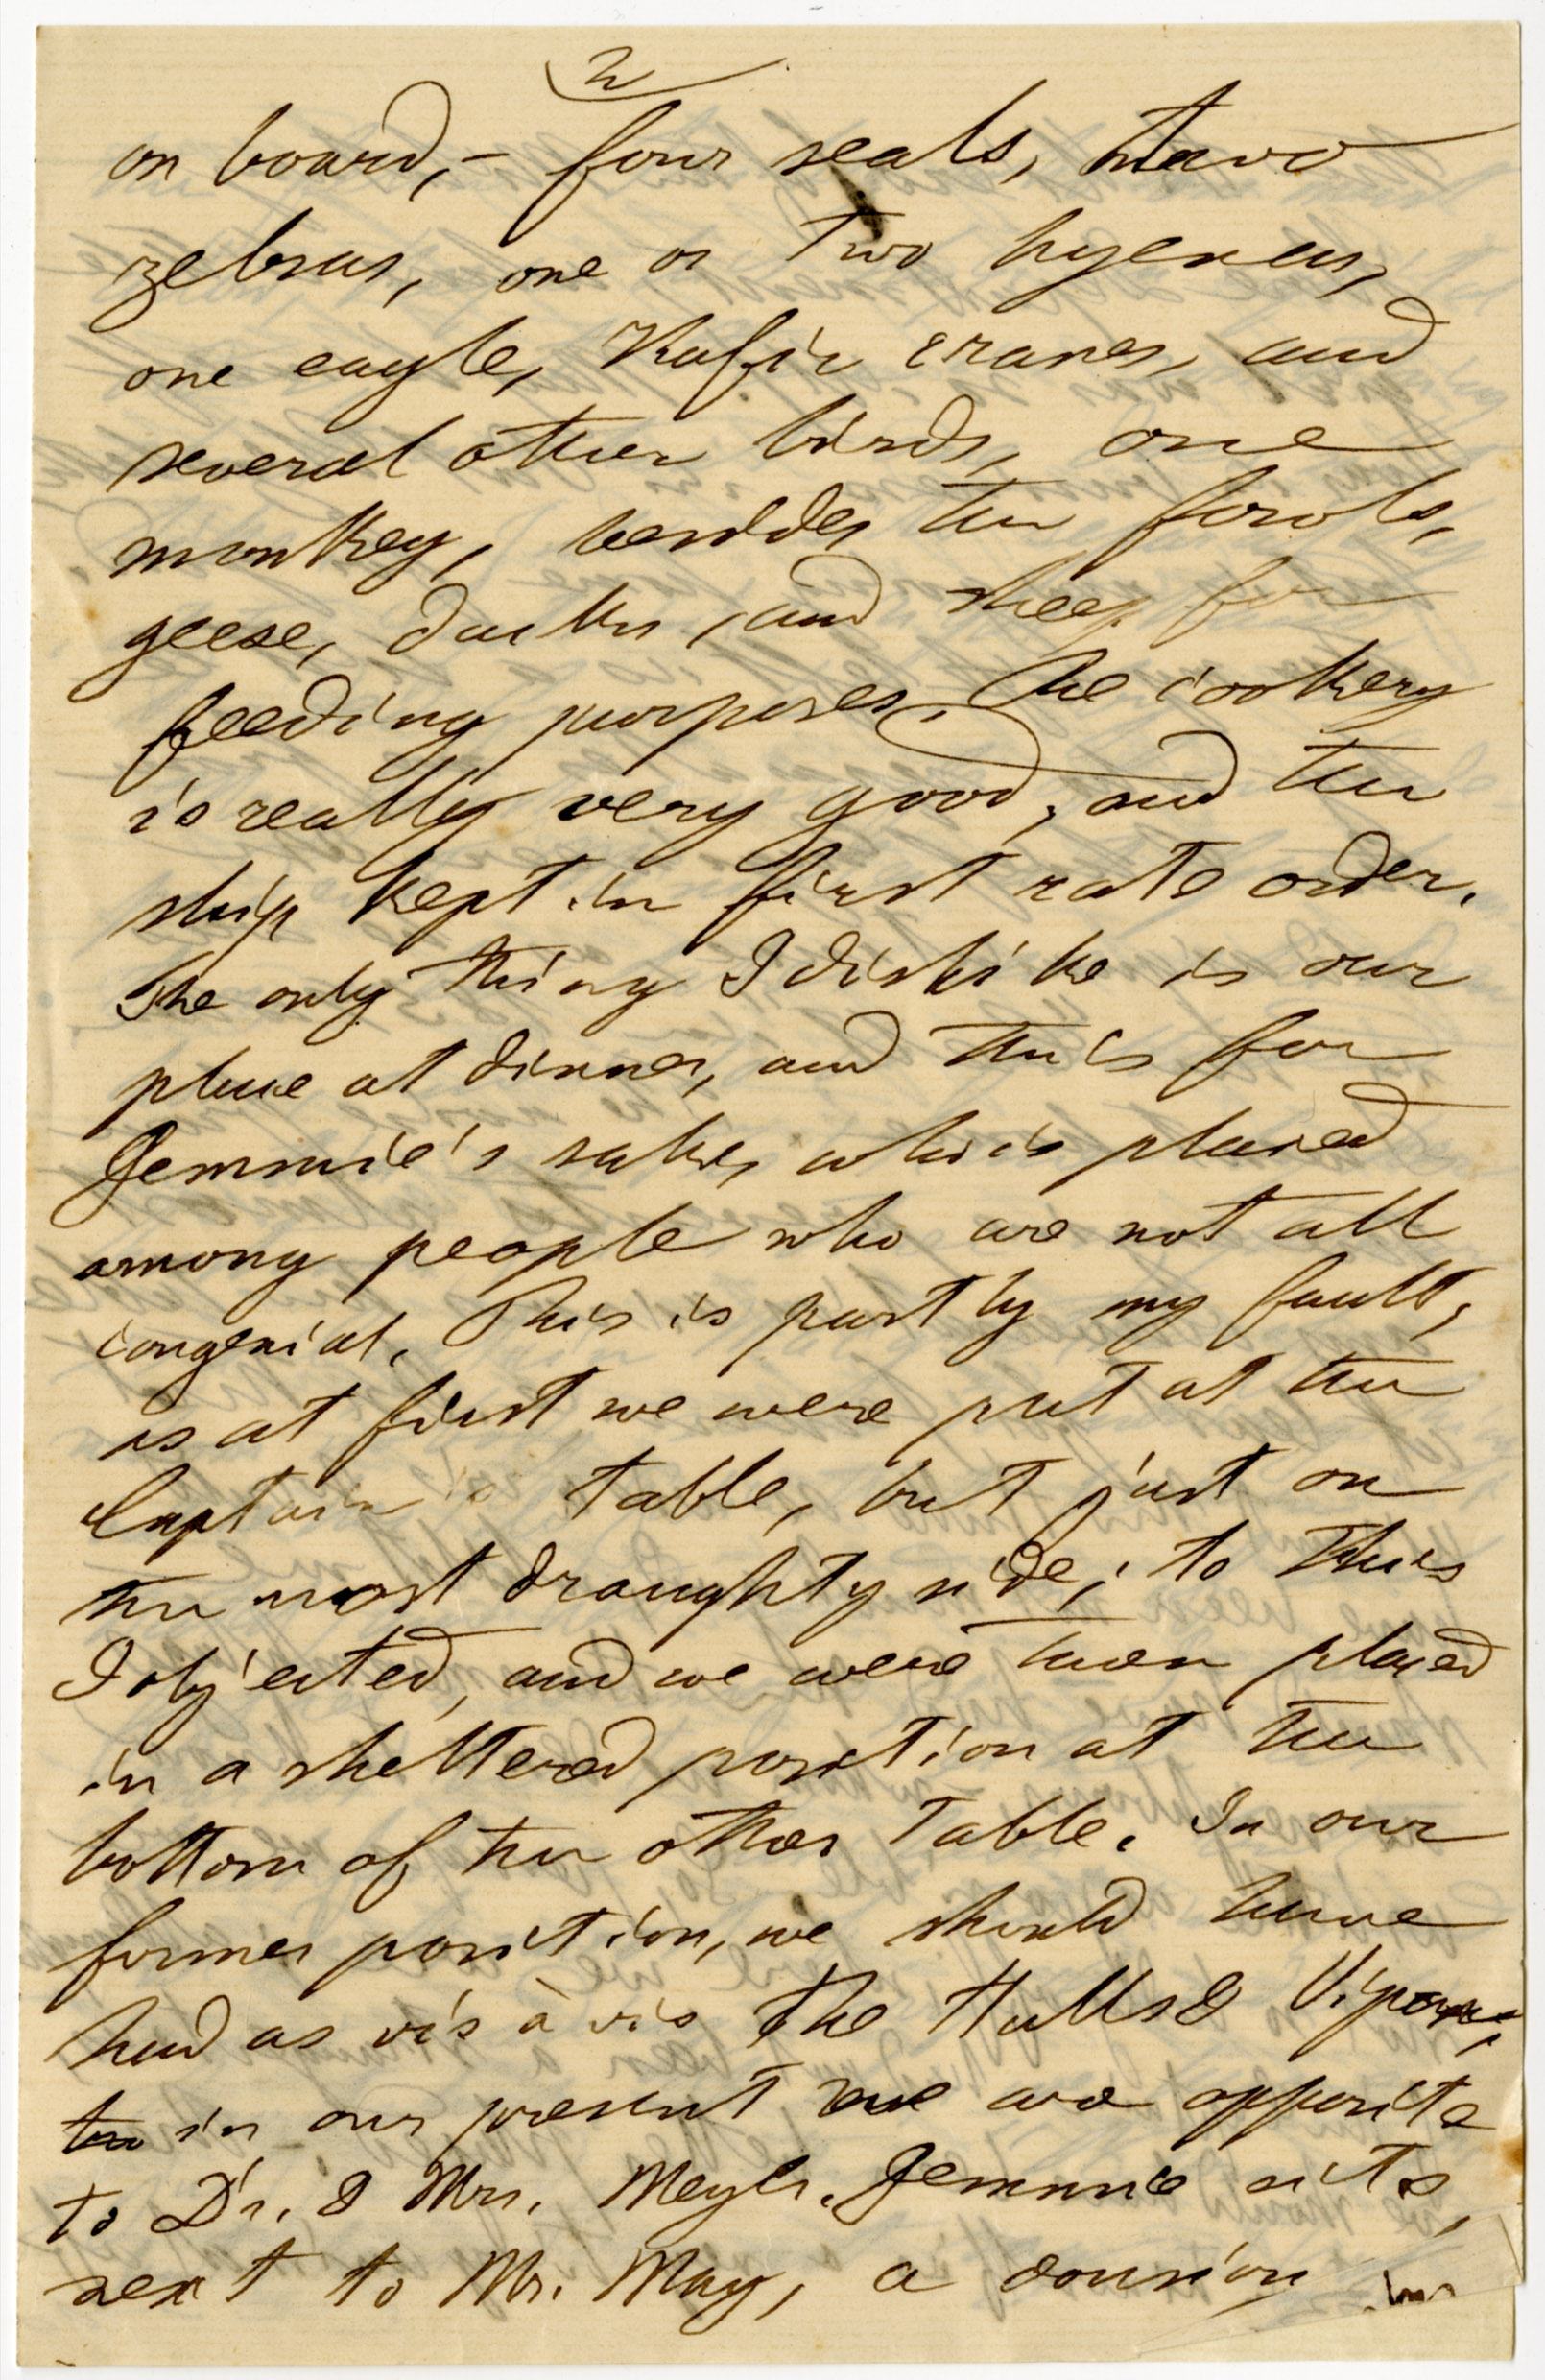 2
on board,- four seals, two
zebras, one or two hyenas,
one eagle, Kafir cranes, and
several other birds, one
monkey, besides the fowls,
geese, ducks, and sheep for
feeding purposes. The cookery
is really very good, and the
ship kept in first rate order.
The only thing I dislike is our
place at dinner, and this for
Jemmie's sake, who is placed
among people who are not all
congenial. This is partly my fault,
as at first we were put at the
Captain's table, but just on
the most draughty side; to this
I objected, and we were then placed
in a sheltered position at the
bottom of the other table. In our
former position, we should have
had as vis à vis the Halls &
in our present we are opposite
to Dr. & Mrs. Jemmie sits
next to Mr. May, a cousin